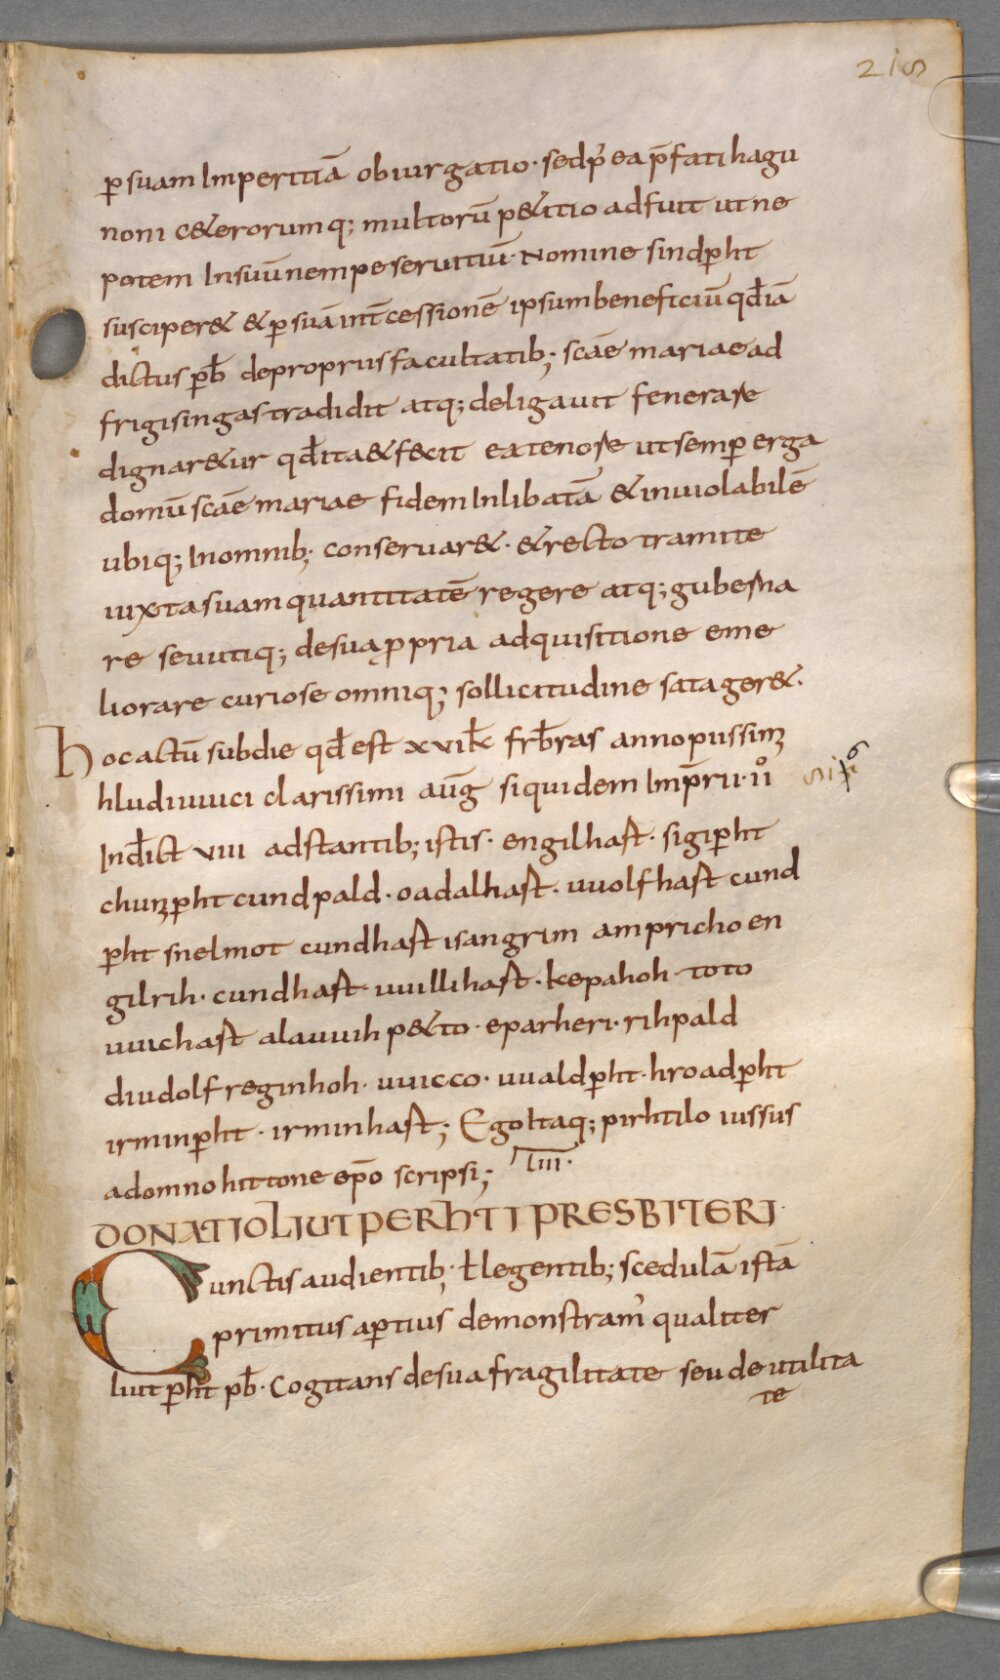 215
p̄ suam Imperitiā obiurgatio · sed pꝰ ea p̄fati hagu
noni c&erorumq; multorū p&itio adfuit ut ne
potem In suū nempe seruitiū · Nomine sindp̄ht
susciper& & p̄ suā int̄cessionē ipsum beneficiū qđ iā
dictus pr̄b de propriis facultatib; scāe mariae ad
frigisingas tradidit atq; deligauit fenerare
dignar&ur qđ ita & fecit ea tenore ut semp̄ erga
domū scāe mariae fidem Inlibatā & inuiolabilē
ubiq; In omnib; conseruar& · & recto tramite
iuxta suam quantitatē regere atq; guberna
re seu utiq; de sua ꝓpria adquisitione eme
liorare curiose omniq; sollicitudine satager& ·
hoc actū sub die qđ est xvi kł febr̄as anno piissimi
hludiuuici clarissimi aūg siquidem Imp̄rii · iio
Indict viii adstantib; istis · engilhast · sigip̄ht
chunzp̄ht cundpald · oadalhast · uuolfhast cund
p̄ht snelmot cundhast isangrim ampricho en
gilrih · cundhast · uuillihast · kepahoh · toto
uuichast alauuih p&to · eparheri · rihpald
diudolf reginhoh · uuicco · uualdp̄ht · hroadp̄ht
irminp̄ht · irminhast; Ego itaq; pirhtilo iussus
a domno hittone ep̄o scripsi; Liii ·
DONATIO LIUTPERHTI PRESBITERI ·
Cunctis audientib; ł legentib; scedulā istā
primitus ap̄tius demonstramꝰ qualiter
liutp̄ht pr̄b · Cogitans de sua fragilitate seu de utilita
te